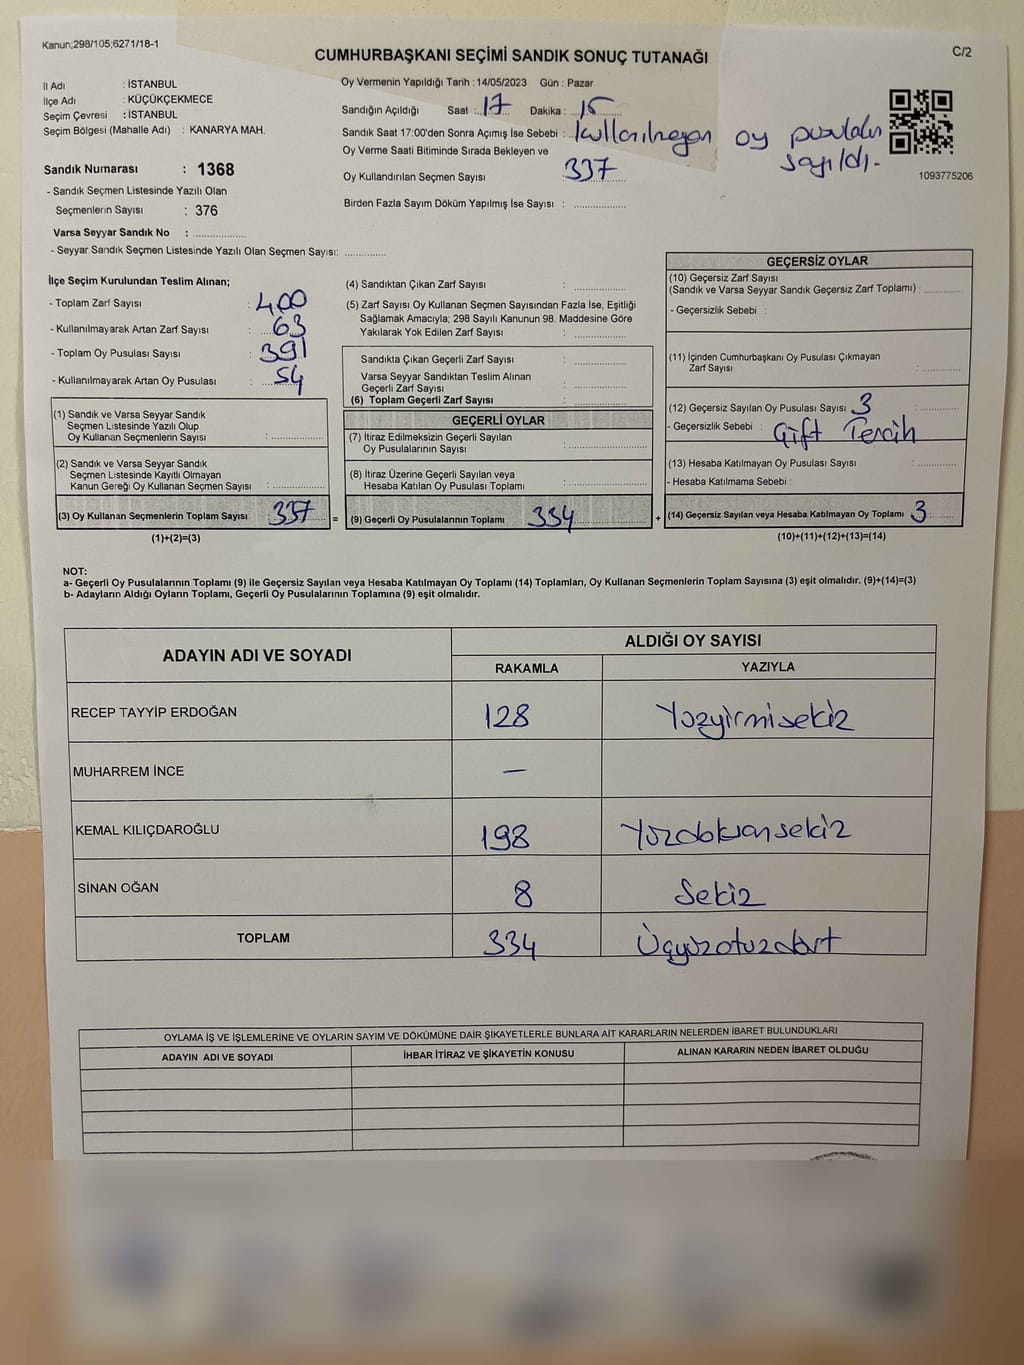 Kanun;298/105;6271/18-1
CUMHURBAŞKANI SEÇİMİ SANDIK SONUÇ TUTANAĞI
C/2
İl Adı : İSTANBUL
İlçe Adı : KÜÇÜKÇEKMECE
Seçim Çevresi : İSTANBUL
Seçim Bölgesi (Mahalle Adı) : KANARYA MAH.
Sandık Numarası : 1368
- Sandık Seçmen Listesinde Yazılı Olan
Seçmenlerin Sayısı : 376
Varsa Seyyar Sandık No :
- Seyyar Sandık Seçmen Listesinde Yazılı Olan Seçmen Sayısı:
Oy Vermenin Yapıldığı Tarih : 14/05/2023 Gün : Pazar
Sandığın Açıldığı Saat : 17 Dakika : 15
Sandık Saat 17:00'den Sonra Açımış İse Sebebi : kullanılmayan oy pusulaları
sayıldı.
Oy Verme Saati Bitiminde Sırada Bekleyen ve
Oy Kullandırılan Seçmen Sayısı : 337
Birden Fazla Sayım Döküm Yapılmış İse Sayısı :
1093775206
İlçe Seçim Kurulundan Teslim Alınan;
- Toplam Zarf Sayısı : 400
- Kullanılmayarak Artan Zarf Sayısı : 63
- Toplam Oy Pusulası Sayısı : 391
- Kullanılmayarak Artan Oy Pusulası : 54
(1) Sandık ve Varsa Seyyar Sandık
Seçmen Listesinde Yazılı Olup
Oy Kullanan Seçmenlerin Sayısı :
(2) Sandık ve Varsa Seyyar Sandık
Seçmen Listesinde Kayıtlı Olmayan
Kanun Gereği Oy Kullanan Seçmen Sayısı :
(3) Oy Kullanan Seçmenlerin Toplam Sayısı 337 =
(1)+(2)=(3)
(4) Sandıktan Çıkan Zarf Sayısı :
(5) Zarf Sayısı Oy Kullanan Seçmen Sayısından Fazla İse, Eşitliği
Sağlamak Amacıyla; 298 Sayılı Kanunun 98. Maddesine Göre
Yakılarak Yok Edilen Zarf Sayısı :
Sandıkta Çıkan Geçerli Zarf Sayısı :
Varsa Seyyar Sandıktan Teslim Alınan
Geçerli Zarf Sayısı :
(6) Toplam Geçerli Zarf Sayısı :
GEÇERLİ OYLAR
(7) İtiraz Edilmeksizin Geçerli Sayılan
Oy Pusulalarının Sayısı :
(8) İtiraz Üzerine Geçerli Sayılan veya
Hesaba Katılan Oy Pusulası Toplamı :
(9) Geçerli Oy Pusulalarının Toplamı 334 +
GEÇERSİZ OYLAR
(10) Geçersiz Zarf Sayısı
(Sandık ve Varsa Seyyar Sandık Geçersiz Zarf Toplamı) :
- Geçersizlik Sebebi :
(11) İçinden Cumhurbaşkanı Oy Pusulası Çıkmayan
Zarf Sayısı :
(12) Geçersiz Sayılan Oy Pusulası Sayısı 3 :
- Geçersizlik Sebebi : Çift Tercih
(13) Hesaba Katılmayan Oy Pusulası Sayısı :
- Hesaba Katılmama Sebebi :
(14) Geçersiz Sayılan veya Hesaba Katılmayan Oy Toplamı 3
(10)+(11)+(12)+(13)=(14)
NOT:
a- Geçerli Oy Pusulalarının Toplamı (9) ile Geçersiz Sayılan veya Hesaba Katılmayan Oy Toplamı (14) Toplamları, Oy Kullanan Seçmenlerin Toplam Sayısına (3) eşit olmalıdır. (9)+(14)=(3)
b- Adayların Aldığı Oyların Toplamı, Geçerli Oy Pusulalarının Toplamına (9) eşit olmalıdır.
ADAYIN ADI VE SOYADI
ALDIĞI OY SAYISI
RAKAMLA YAZIYLA
RECEP TAYYİP ERDOĞAN 128 Yüzyirmisekiz
MUHARREM İNCE —
KEMAL KILIÇDAROĞLU 198 Yüzdoksansekiz
SİNAN OĞAN 8 Sekiz
TOPLAM 334 Üçyüzotuzdört
OYLAMA İŞ VE İŞLEMLERİNE VE OYLARIN SAYIM VE DÖKÜMÜNE DAİR ŞİKAYETLERLE BUNLARA AİT KARARLARIN NELERDEN İBARET BULUNDUKLARI
ADAYIN ADI VE SOYADI İHBAR İTİRAZ VE ŞİKAYETİN KONUSU ALINAN KARARIN NEDEN İBARET OLDUĞU